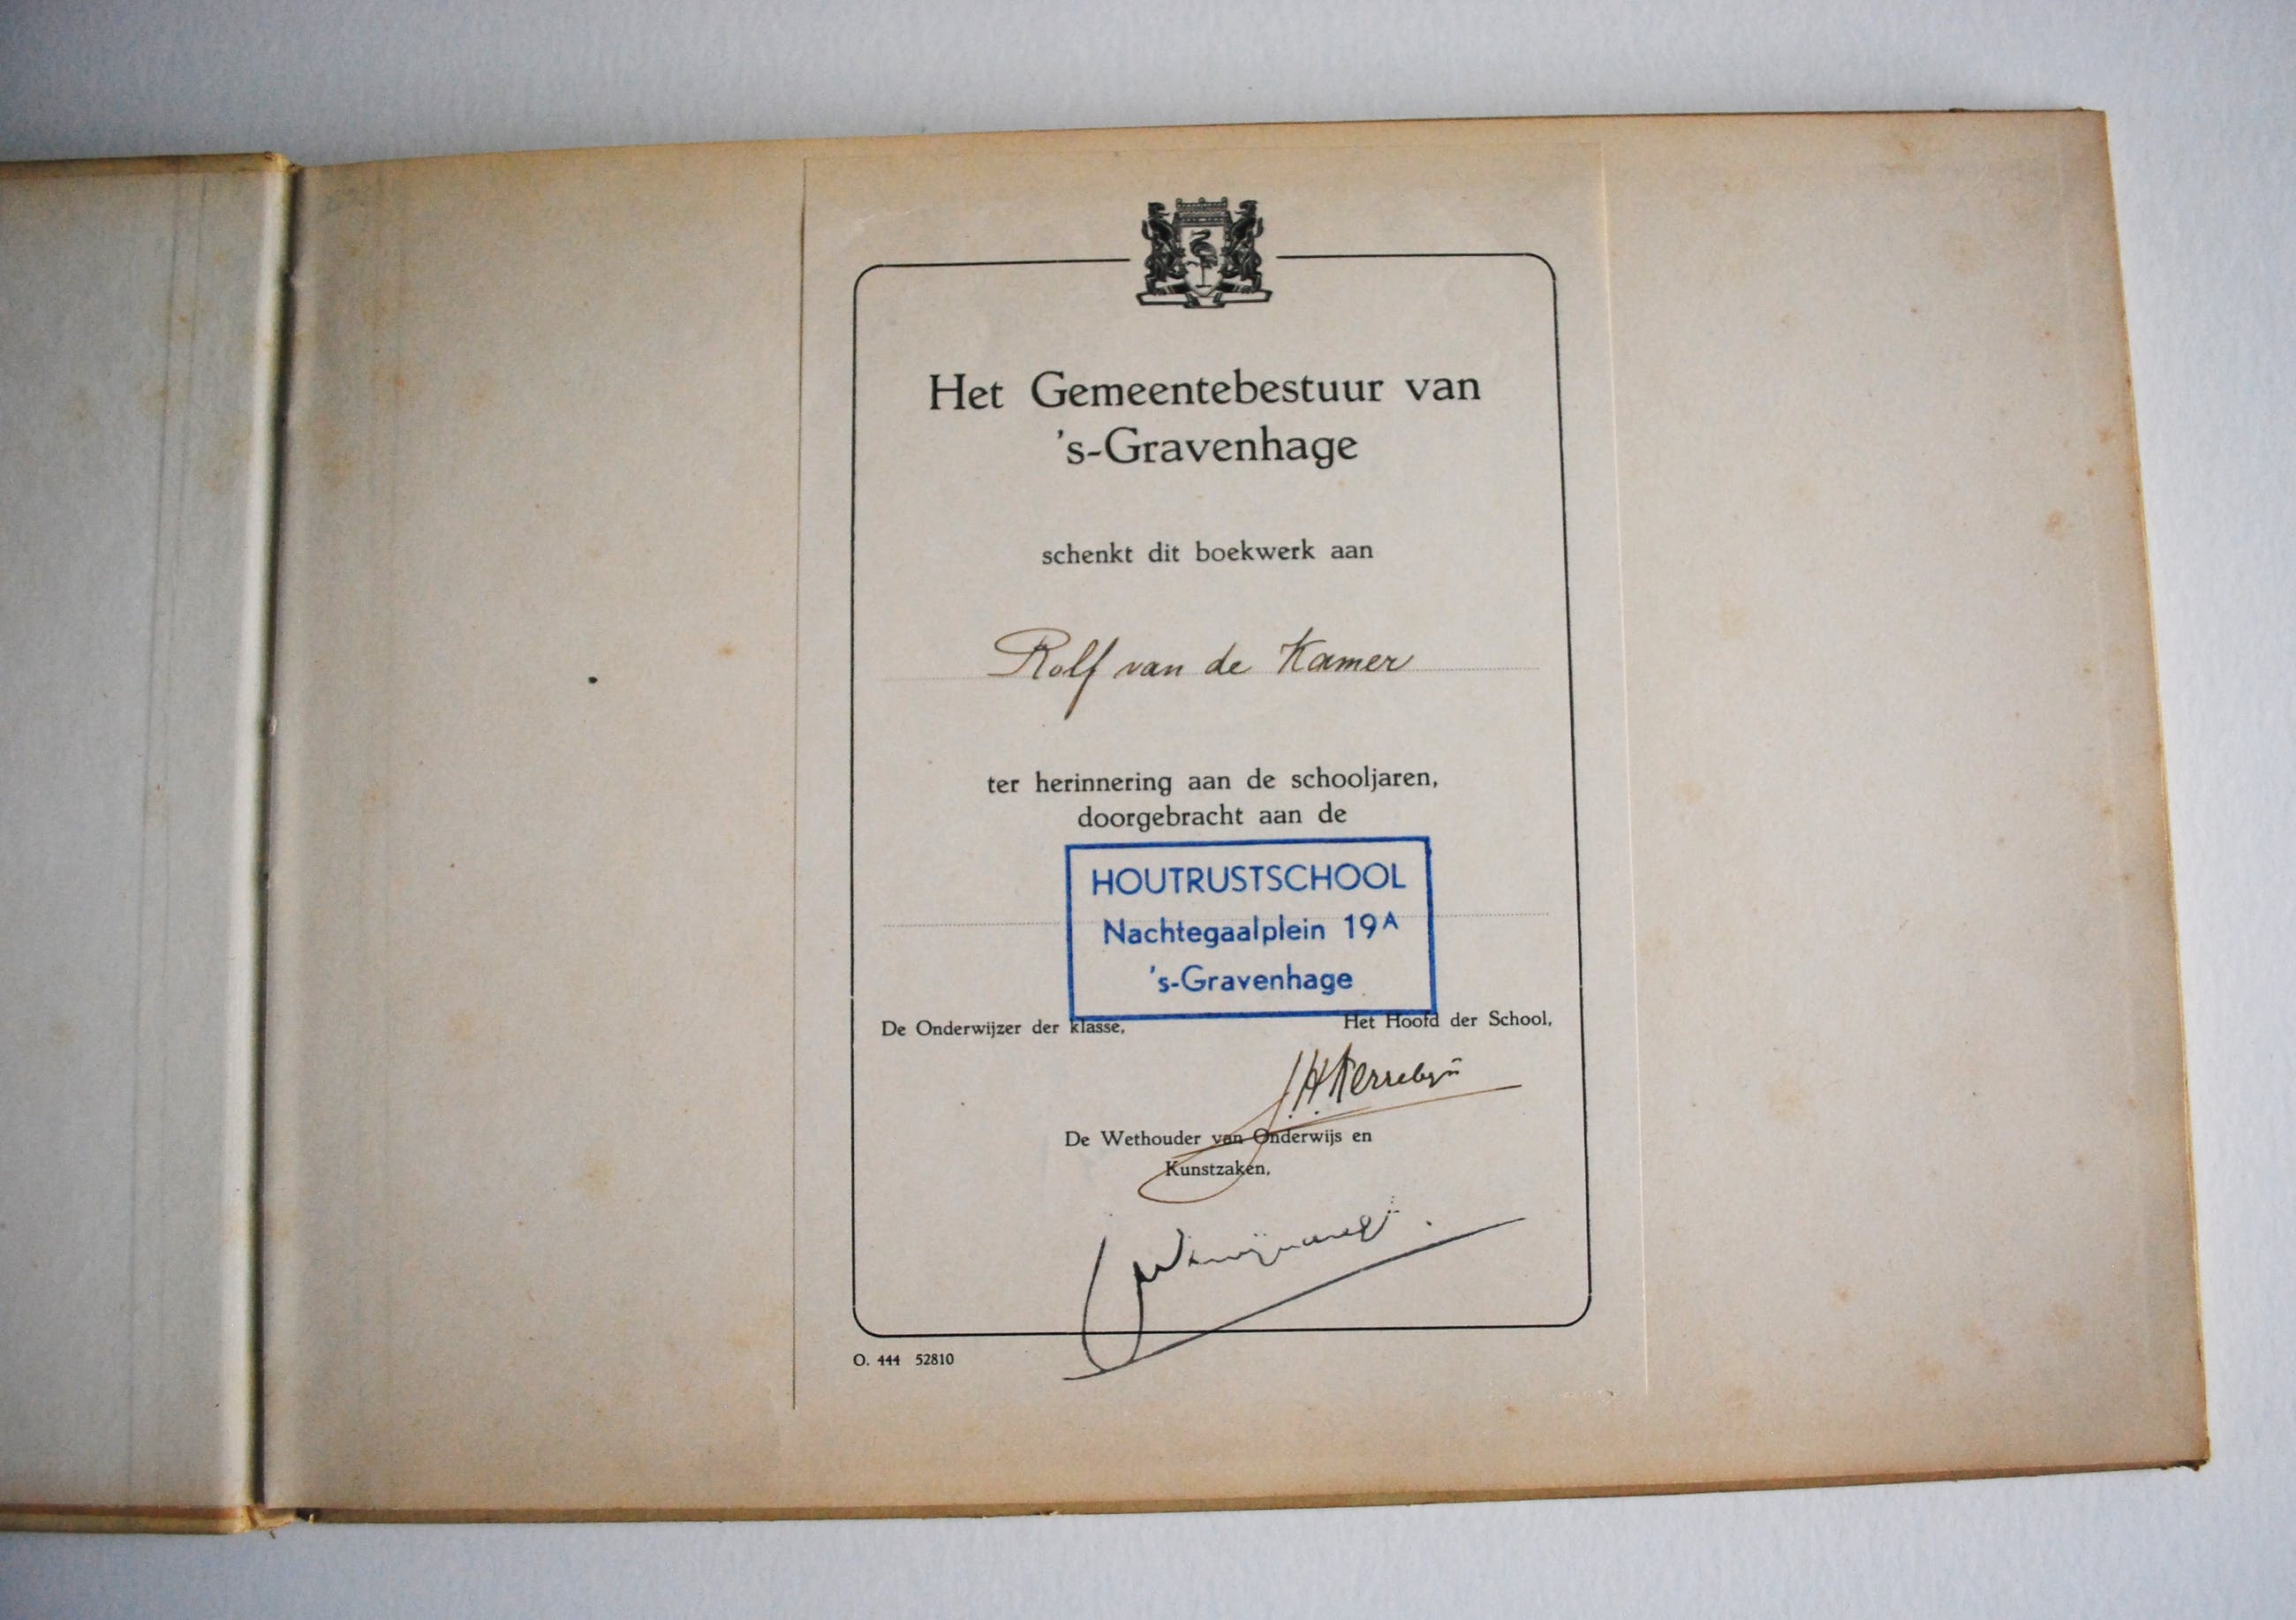 Het Gemeentebestuur van
's-Gravenhage
schenkt dit boekwerk aan
Rolf van de Kamer
ter herinnering aan de schooljaren,
doorgebracht aan de
HOUTRUSTSCHOOL
Nachtegaalplein 19A
's-Gravenhage
De Onderwijzer der klasse,
Het Hoofd der School,
De Wethouder van Onderwijs en
Kunstzaken,
O. 444 52810